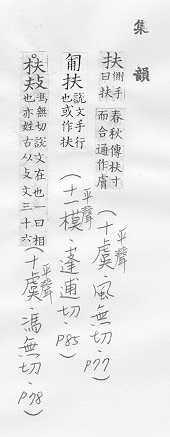 集韻
扶 側手曰扶 春秋傳扶寸而合通作膚 (平聲 十虞‧風無切‧P77)
匍扶 說文手行也或作扶 (平聲 十一模‧蓬逋切‧P85)
扶 馮無切說文左也一曰相也亦姓古从攴文三十六 (平聲 十虞‧馮無切‧P78)